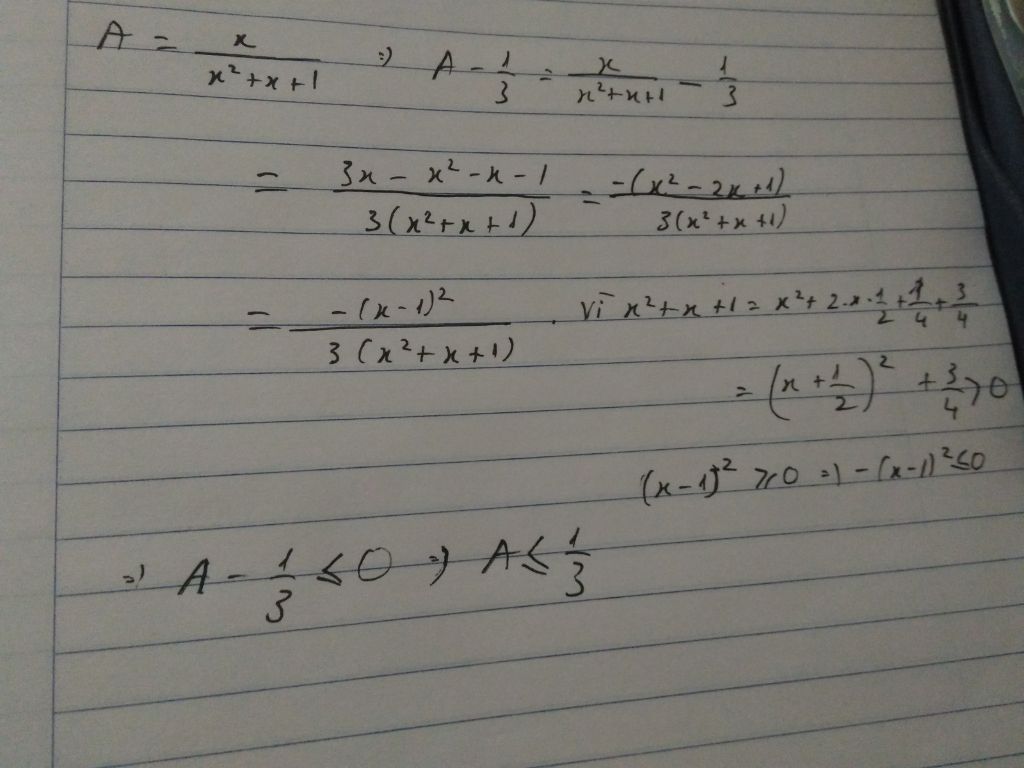 A = x/(x²+x+1) => A - 1/3 = x/(x²+x+1) - 1/3
= (3x - x² - x - 1)/(3(x²+x+1)) = -(x² - 2x + 1)/(3(x²+x+1))
= -(x-1)²/(3(x²+x+1)) . Vì x²+x+1 = x² + 2.x.1/2 + 1/4 + 3/4
= (x + 1/2)² + 3/4 > 0
(x-1)² ≥ 0 => -(x-1)² ≤ 0
=> A - 1/3 ≤ 0 => A ≤ 1/3